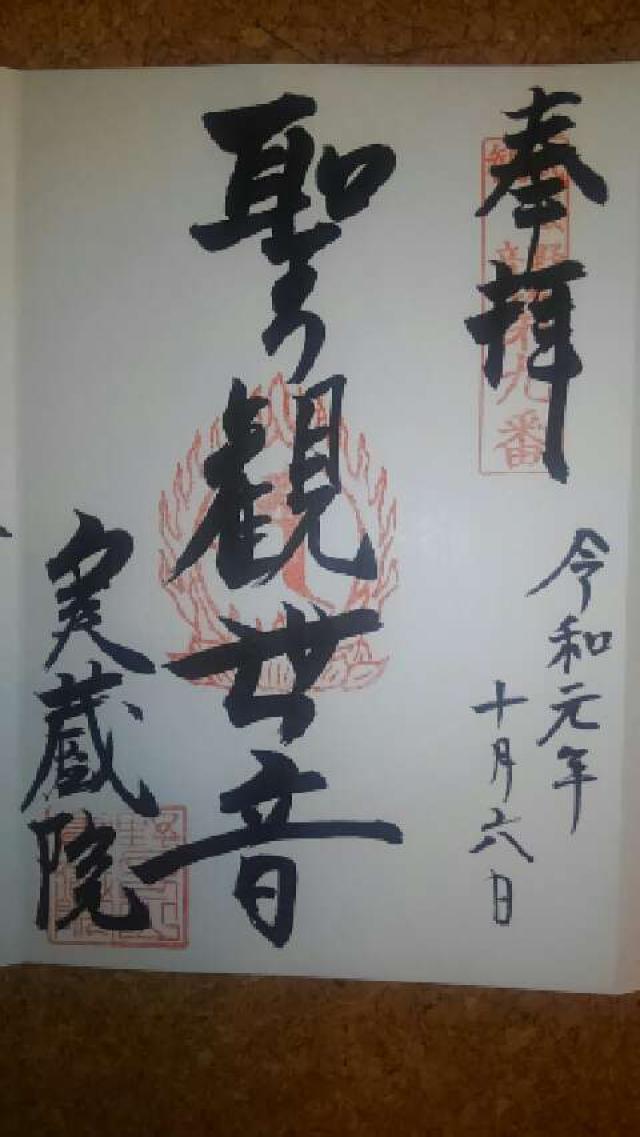 奉拝
九番
令和元年
十月六日
聖観世音
実蔵院